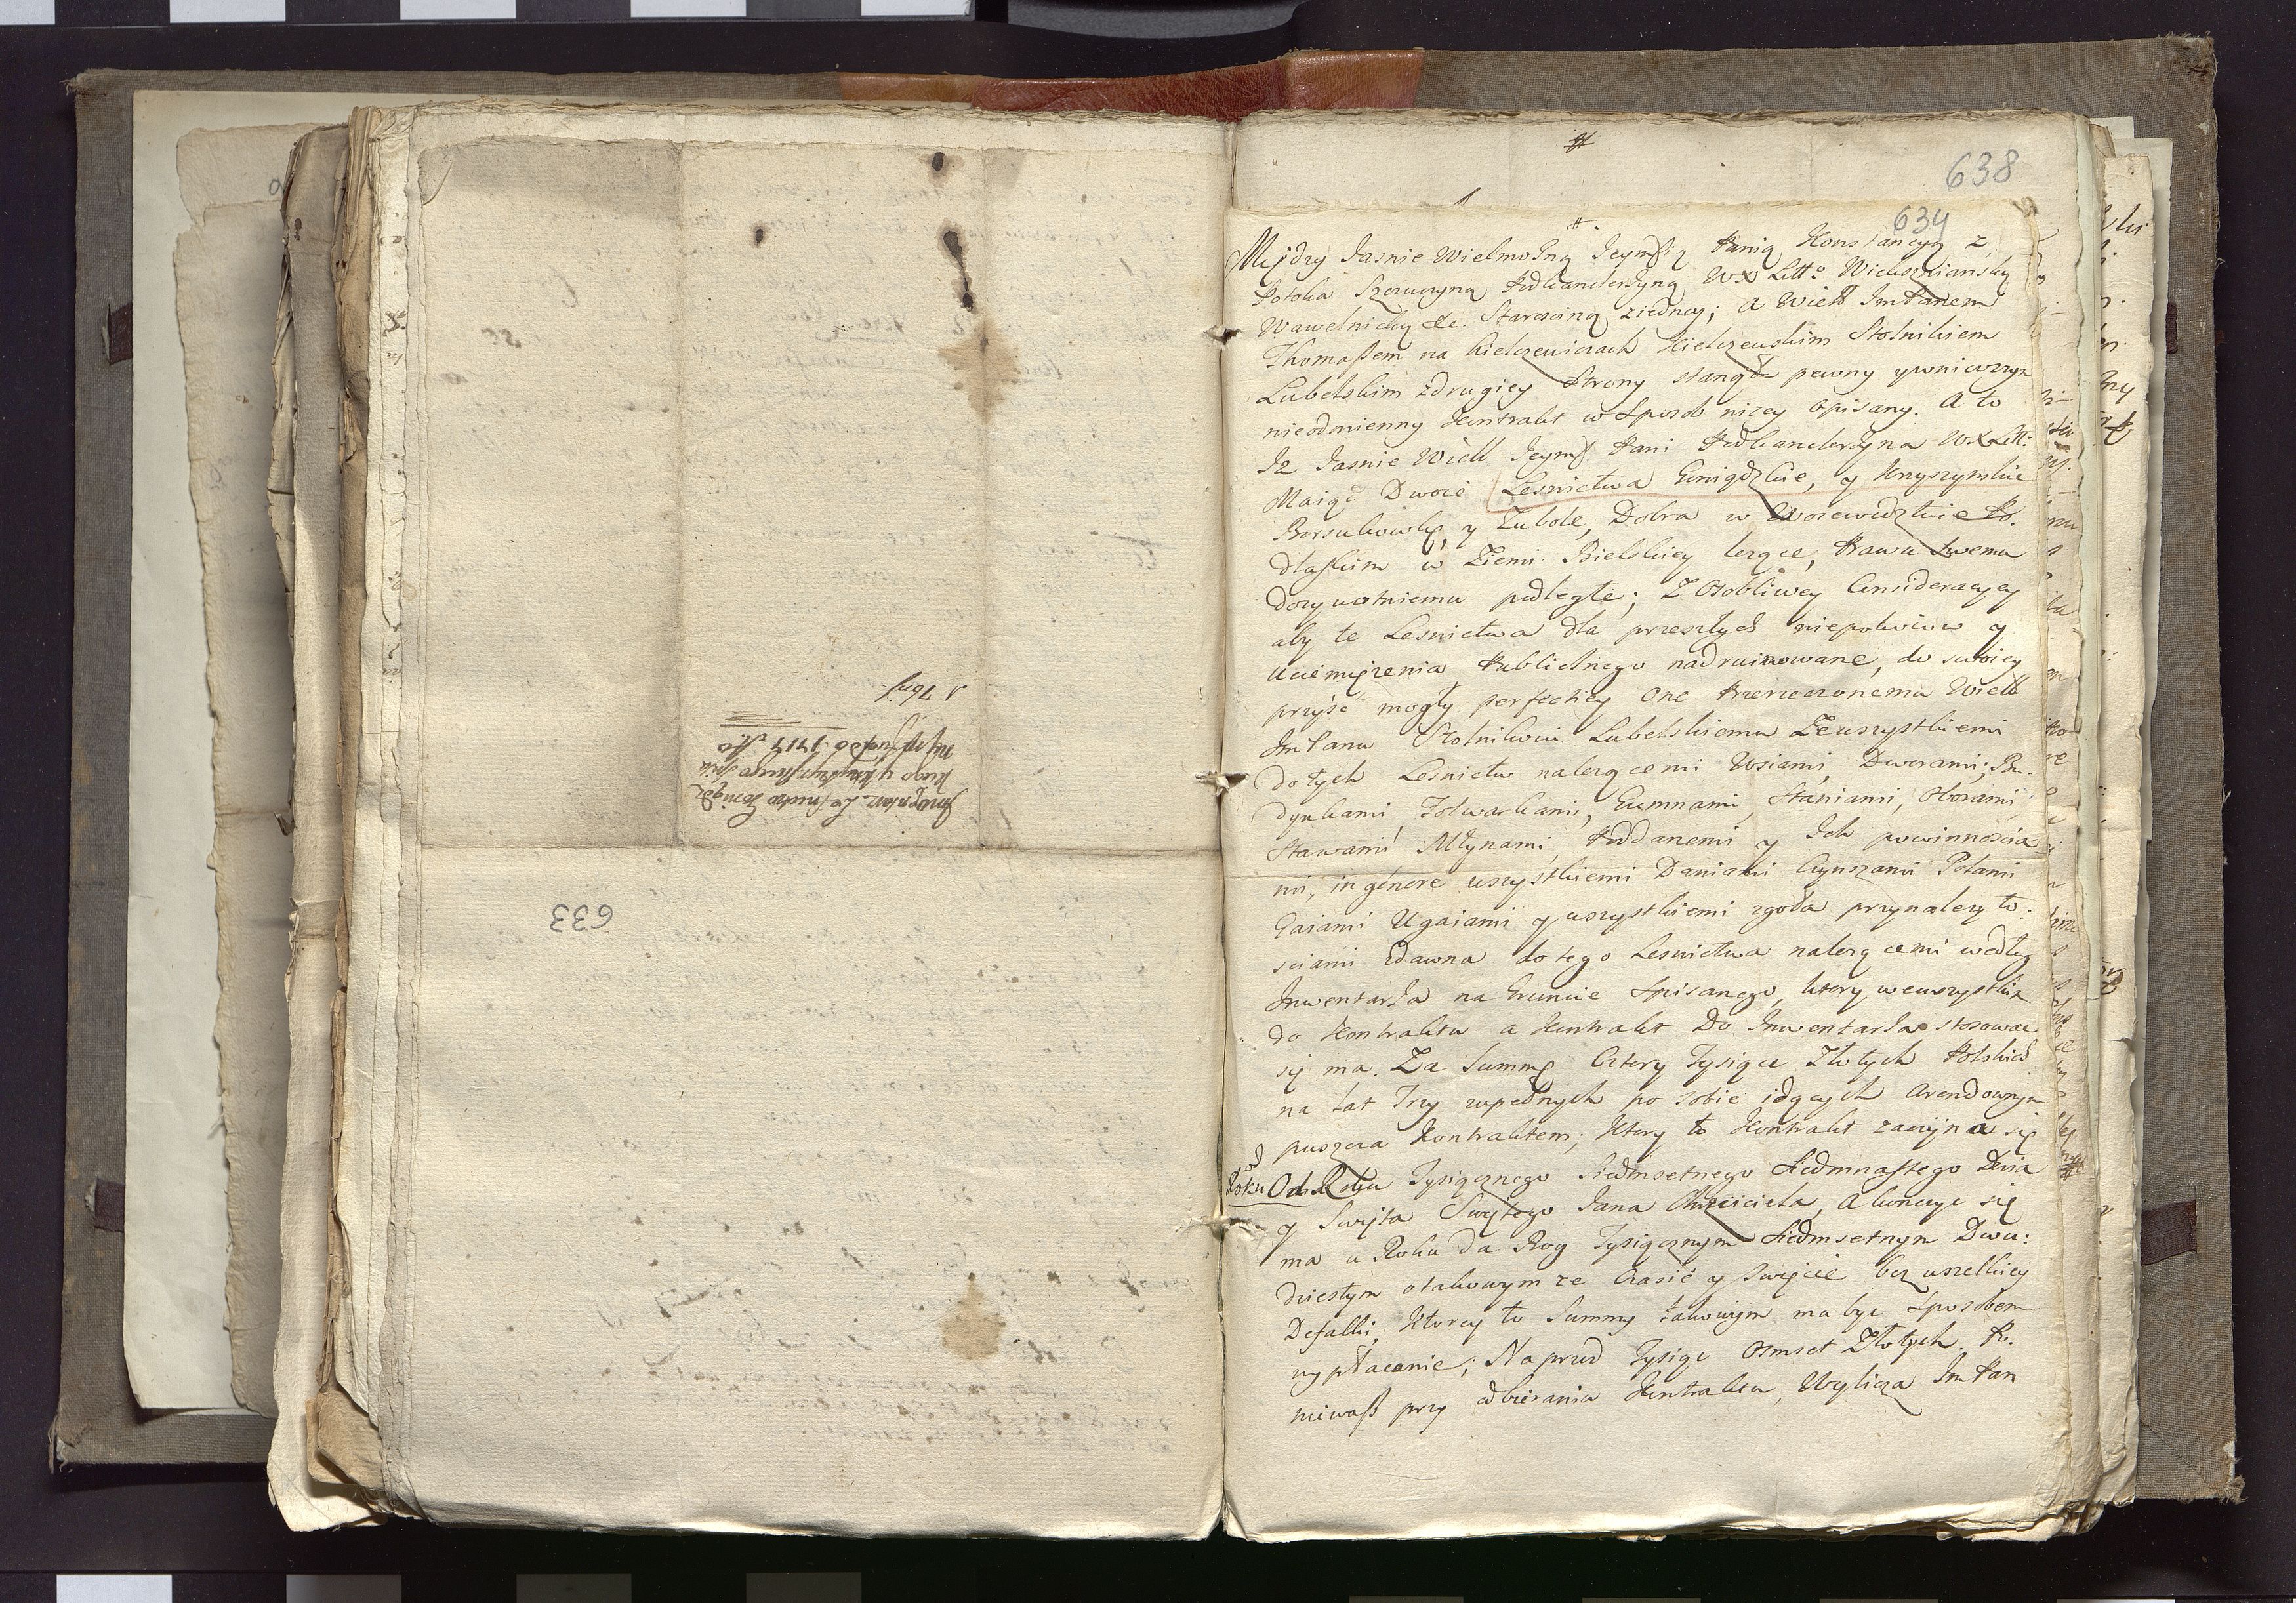 Inwentarz Leśnictwa Goniądz
kiego y Knyszyńskiego
1717 Ao
1 7bris
633
638
634
Między Jasnie Wielmożną Jeymścią Panią Konstancyą z
Potoka Szczuczyną Podkanclerzyną WX Litt: Wieluszkianską
Wawelnicką &c. Starościną ziedney; a Wiell ImPanem
Thomaßem na Kielczewicach Kielczewskim Stolnikiem
Lubelskim zdrugiey Strony stanął pewny ywniwczym
nieodmienny Kontrakt w Sposob nizey opisany. A to
Iz Jasnie Wiell Jeymść Pani Podkanclerzyna WX Litt:
Maiąc Dwoie Lesnictwa Goniądzkie, y Knyszynskie
Borsukowkę, y Zubole, Dobra w Wojewodztwie Po.
dlaskim w Ziemi Bielskiey lezące, Prawu Swemu
dozywotniemu podległe; Z Osobliwey Consideracyey
aby te Lesnictwa dla przeszłych niepokoiow y
uciemięzenia Publicznego nadruinowane, do swoiey
przyść mogły perfekciey One Przerzeczonemu Wiell
ImPanu Stolnikowi Lubelskiemu Zewszystkiemi
dotych Lesnictw nalezącemi Wsiami, Dworami, Bu.
dynkami, Folwarkami, Gumnami, Staniami, Oborami
Stawami Młynami, Poddanemi y Ich powinnoscia
mi, in genere wszystkiemi Daniami Czynszami Polami
Gaiami Ugaiami y wszystkiemi zgoła przynalezyto:
sciami zdawna dotego Lesnictwa nalezącemi według
Inwentarza na Gruncie Spisanego, ktory wewszystkim
do Kontraktu a Kontrakt Do Inwentarza stosowac
się ma. Za Summę Cztery Tysiące Złotych Polskich
na Lat Trzy zupełnych po sobie idących Arendownym
puszcza Kontraktem; Ktory to Kontrakt zaczyna się
od
Roku Od Roku Tysiącznego Siedmsetnego Siedmnastego Dnia
y Swięta Swiętego Jana Chrzciciela, A konczyc się
ma w Roku da Bog Tysiącznym Siedmsetnym Dwu:
dziestym otakowym ze Czasie y Swięcie bez wszelkiey
Defalki, Ktorey to Summy takowym ma byc Sposobem
wypłacanie; Naprzod Tysiąc Osmset Złotych. Po.
niewaß przy odbierania Kontraktu, Wylicza ImPan